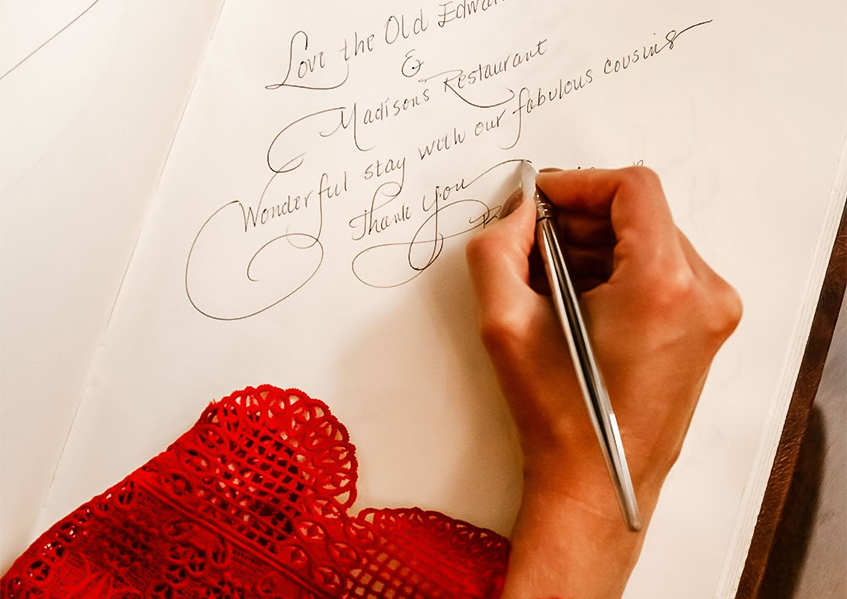 Love the Old Edwar
&
Madisons Restaurant
Wonderful stay with our fabulous cousins
Thank you